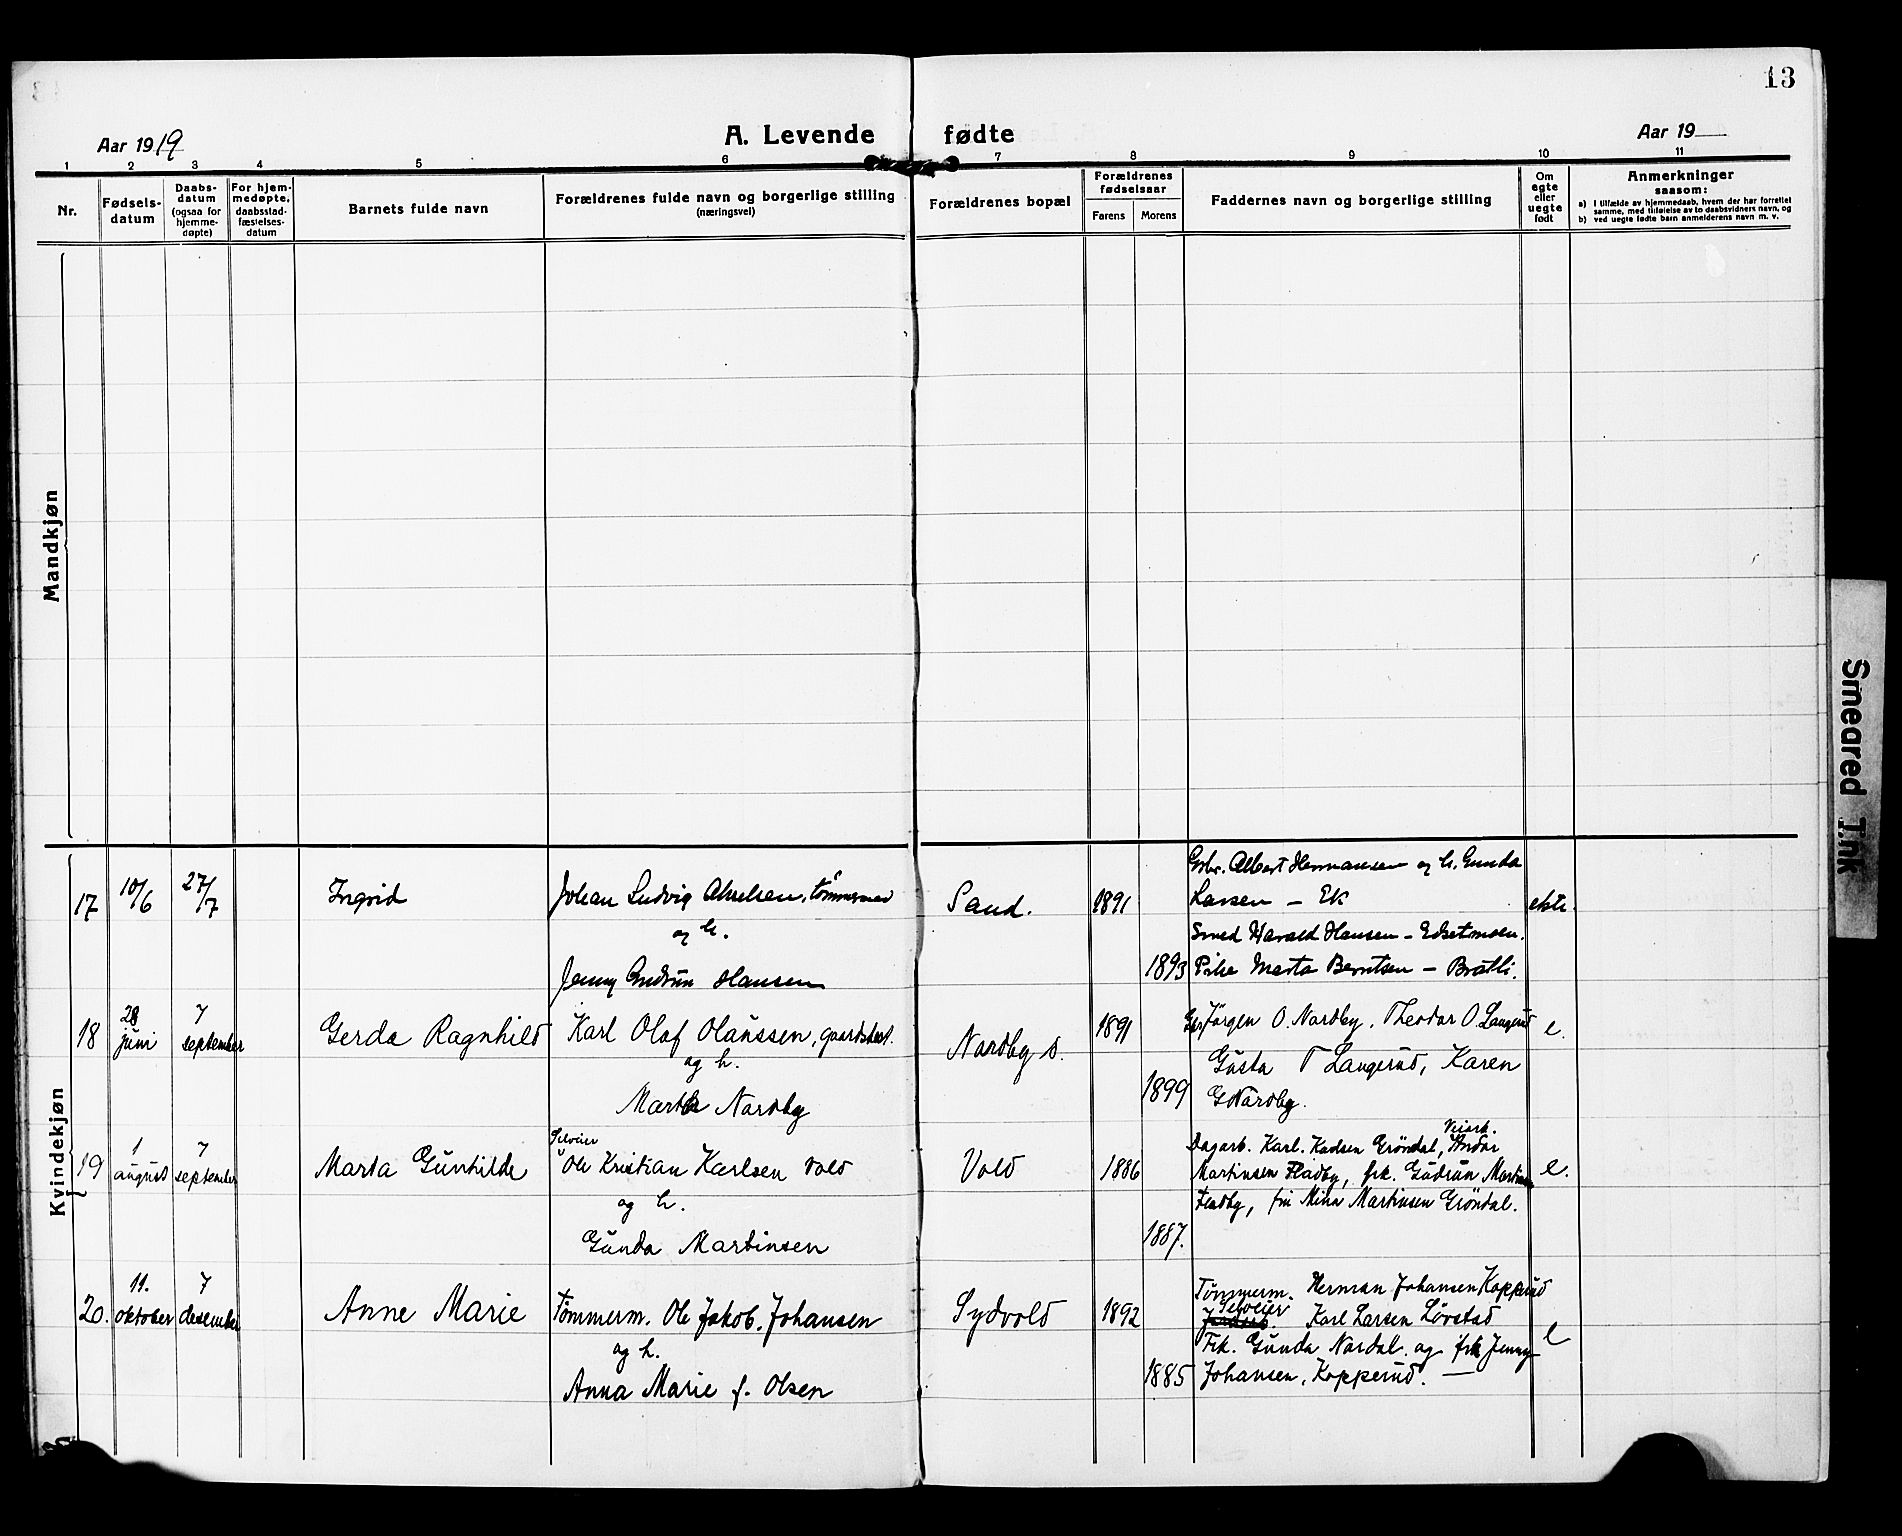 13
A. Levende fødte
Aar 1919
Aar 19
1 2 3 4 5 6 7 8 9 10 11
Nr.
Fødsels-
datum
Daabs-
datum
(ogsaa for
hjemme-
døpte)
For hjem-
medøpte,
daabsstad-
fæstelses-
datum
Barnets fulde navn
Forældrenes fulde navn og borgerlige stilling
(næringsvei)
Forældrenes bopæl
Forældrenes
fødselsaar
Farens Morens
Faddernes navn og borgerlige stilling
Om
egte
eller
uegte
født
Anmerkninger
saasom:
a) I tilfælde av hjemmedaab, hvem der har forrettet
samme, med tilføielse av to daabsvidners navn, og
b) ved uegte fødte barn anmelderens navn m. v.
Mandkjøn
Kvindekjøn
17 10/6 27/7 Ingrid
Johan Ludvig tømmermand
og h.
Jenny Gudrun Hansen
Sand. 1891
1893
Gbr. Albert Hermansen og h. Gunda
Larsen – Ek
Smed Harald Hansen –
Pike Marta Berntsen – Bråtli.
ekte.
18 28 juni 7 september Gerda Ragnhild
Karl Olaf Olaussen, gaardsbest.
og h.
Martha Nardby
Nardby s. 1891
1899
Jørgen O. Nardby, Theodor O. Langerud
Gusta T Langerud, Karen
G Nardby.
e.
19 1 august 7 september Marta Gunhilde
Selveier
Ole Kristian Karlsen Vold
og h.
Gunda Martinsen
Vold 1886
1887.
Veiarb.
Dagarb. Karl Karlsen Gröndal, Andor
Martinsen Fladby, frk. Gudrun Martinsen
Fladby, fru Mina Martinsen Gröndal.
e.
20. 11. oktober 7 desember Anne Marie
Tømmerm. Ole Jakob Johansen
og h.
Anna Marie f. Olsen
Sydvold 1892
1885
Tömmerm. Herman Johansen Kopperud
Selveier Karl Larsen Lövstad
Frk. Gunda Nordal og frk Jenny
Johansen, Kopperud. —
e
Smeared Ink